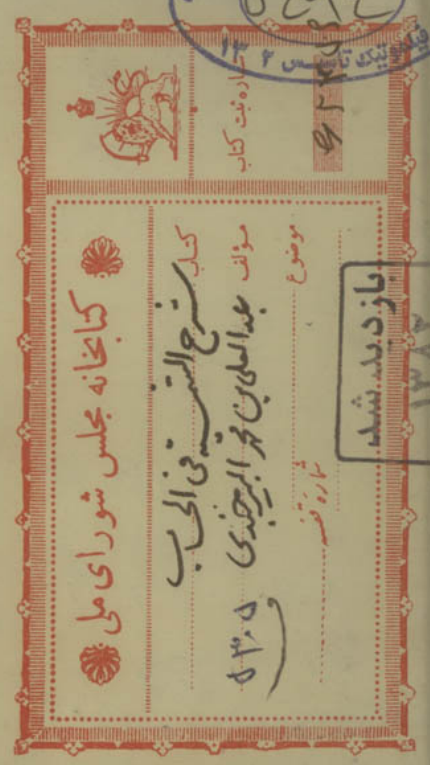 کتابخانه مجلس شورای ملی
کتاب شرح الشمسیة فی الحساب
مؤلف عبدالعلی بن محمد البیرجندی
موضوع
شماره قفسه
۵۳۰۵
شماره ثبت کتاب
بازدید شد
۱۳۸۲